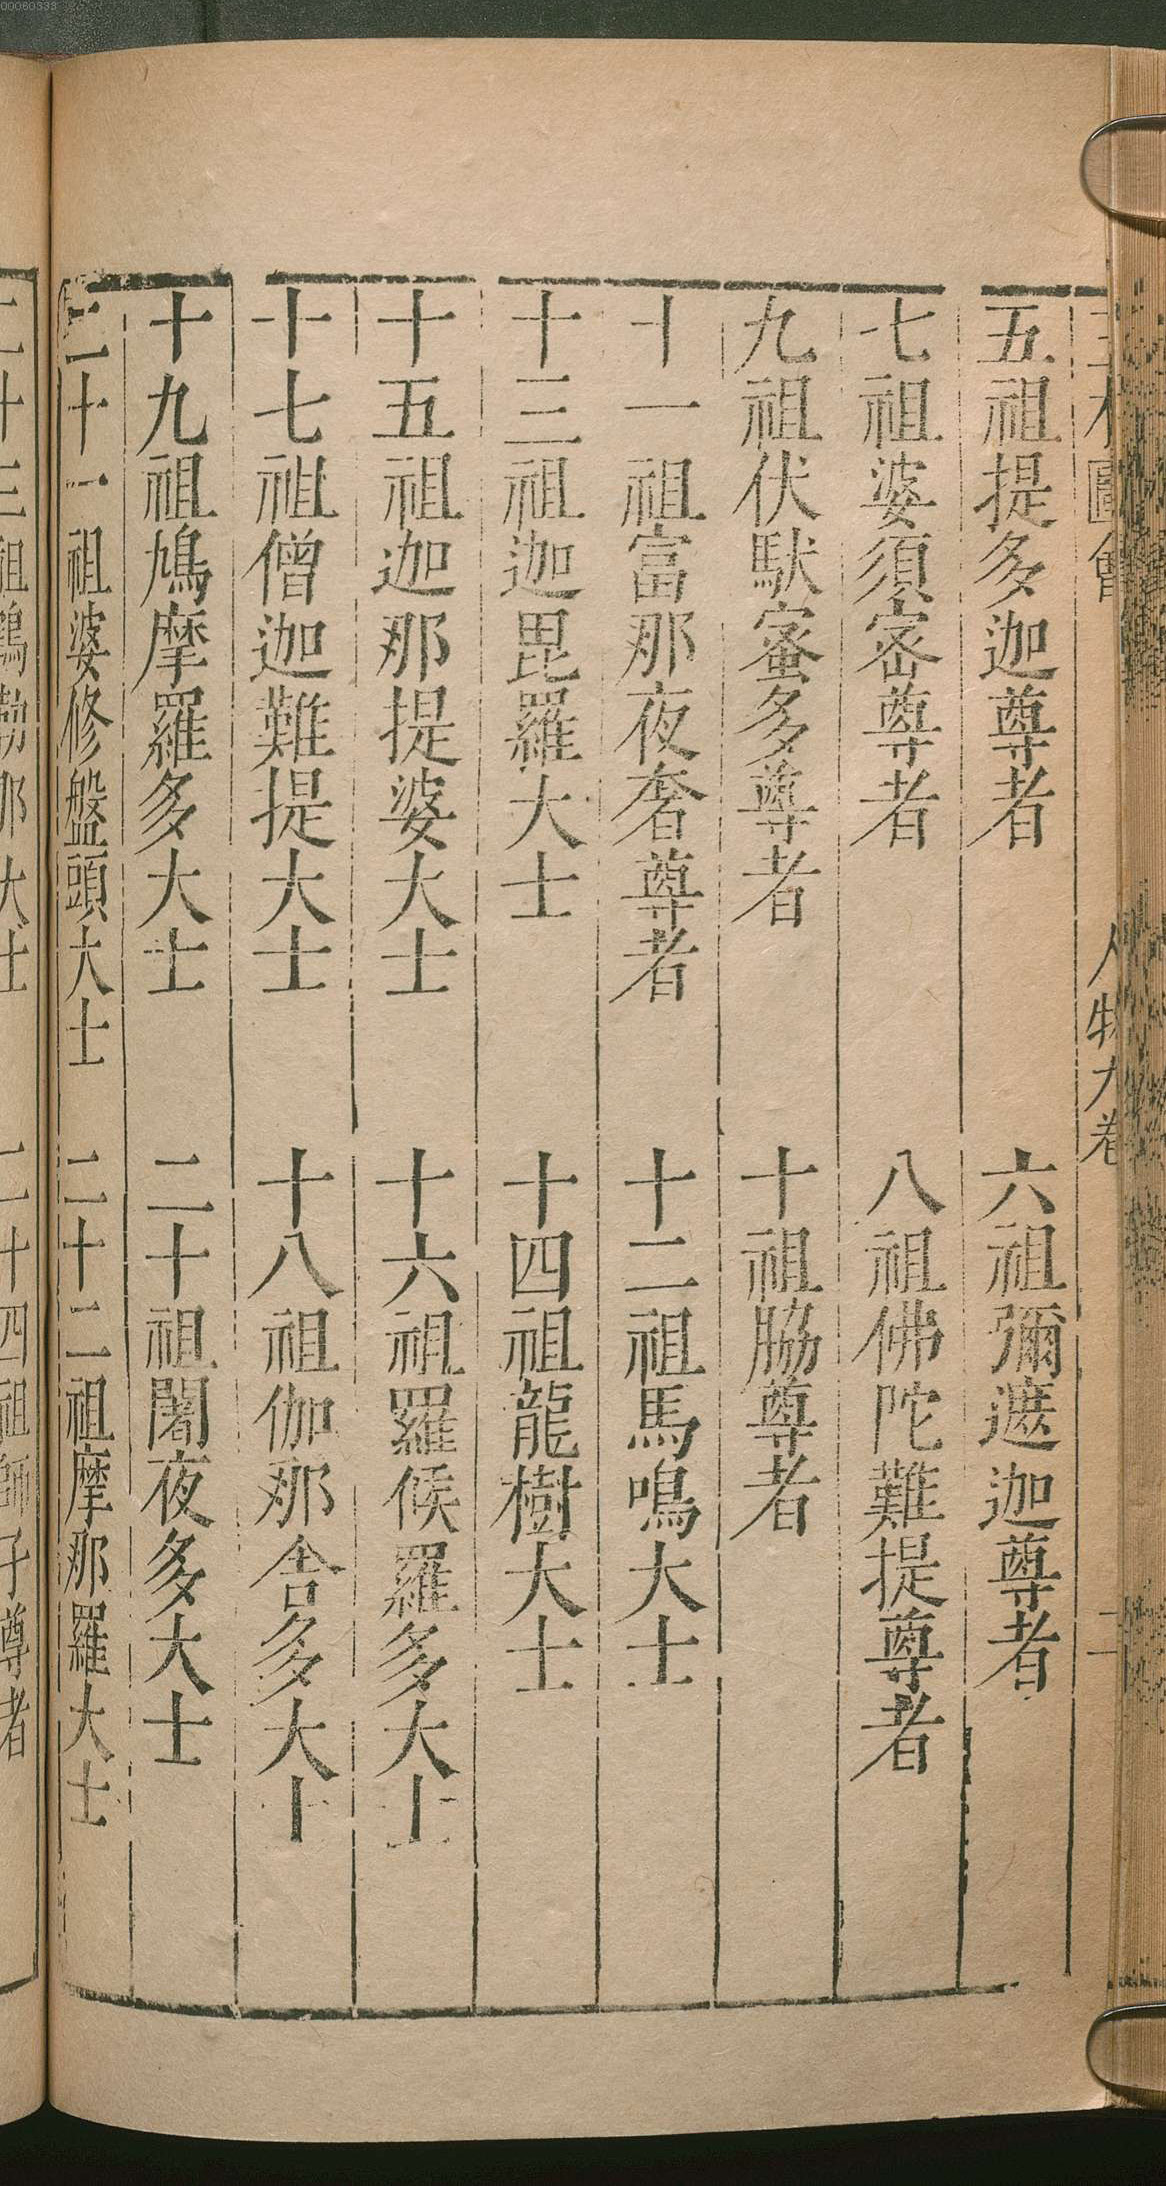 00060333
三才圖會 人物九卷 二
五祖提多迦尊者 六祖彌遮迦尊者
七祖婆須密尊者 八祖佛陀難提尊者
九祖伏馱蜜多尊者 十祖脇尊者
十一祖富那夜奢尊者 十二祖馬鳴大士
十三祖迦毘羅大士 十四祖龍樹大士
十五祖迦那提婆大士 十六祖羅候羅多大士
十七祖僧迦難提大士 十八祖伽那舎多大士
十九祖鳩摩羅多大士 二十祖闍夜多大士
二十一祖婆修盤頭大士 二十二祖摩那羅大士
二十三祖鶴勒那大士 二十四祖師子尊者